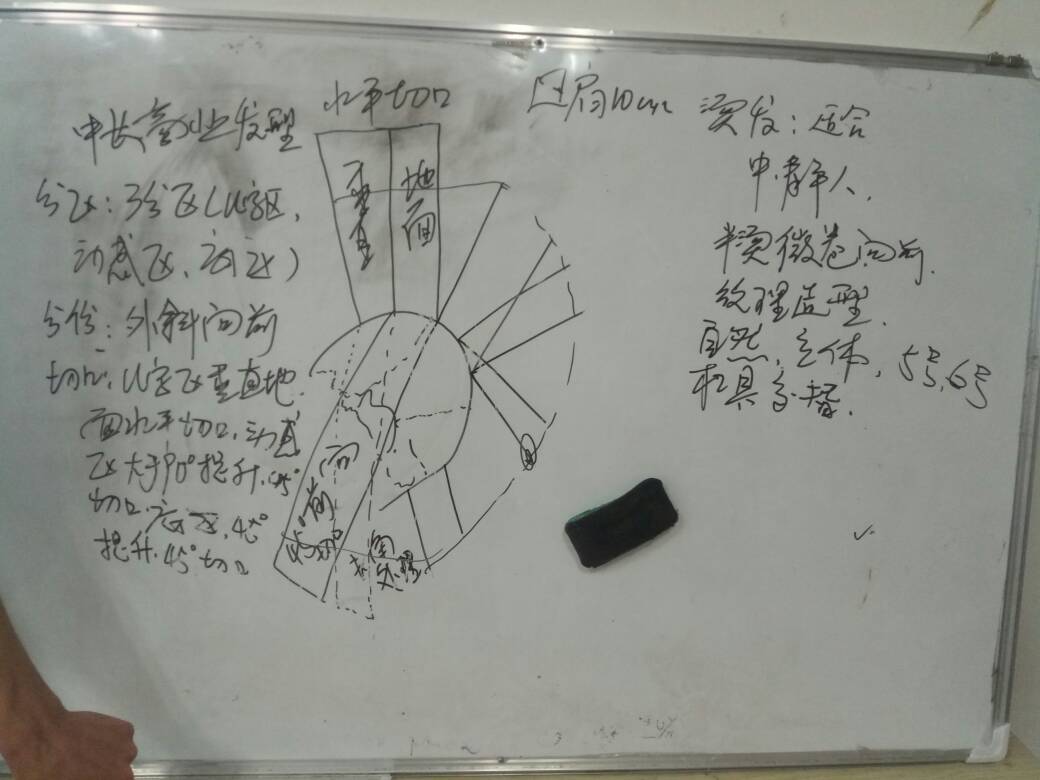 中长商业发型
分区：3分区（U字区、
动感区、底区）
分份：外斜向前
切口：U字区垂直地
面水平切口，动感
区大于90°提升，45°
切口，底区，45°
提升，45°切口
水平切口
垂直
地面
向前
45°
过肩10cm
烫发：适合
中静年人，
半烫微卷向前，
纹理造型，
自然，立体，5号，6号
杠具多替，